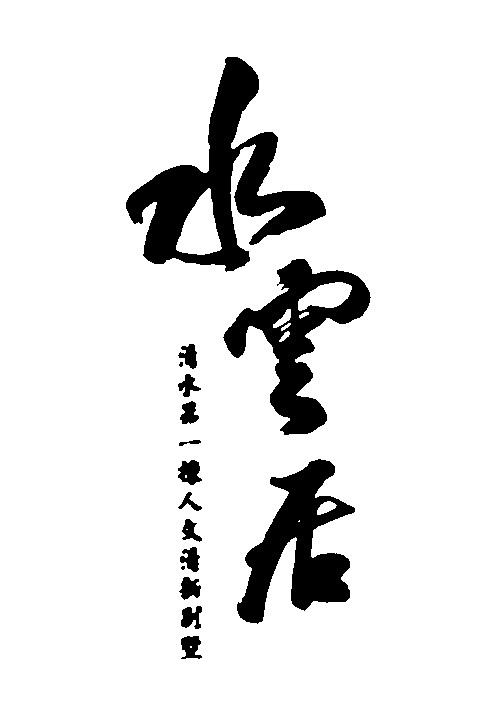 水雲居
清水第一棟人文清新別墅